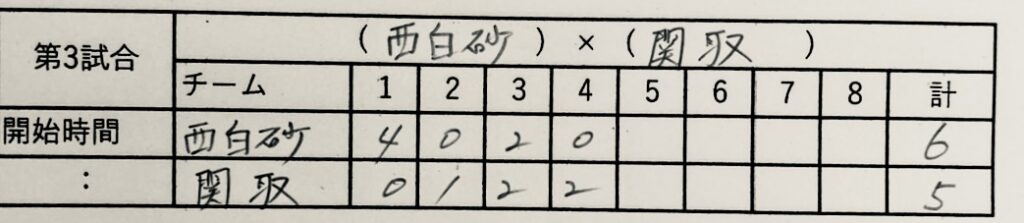 第3試合 (西白砂) × (関取)
チーム 1 2 3 4 5 6 7 8 計
開始時間 西白砂 4 0 2 0 6
: 関取 0 1 2 2 5